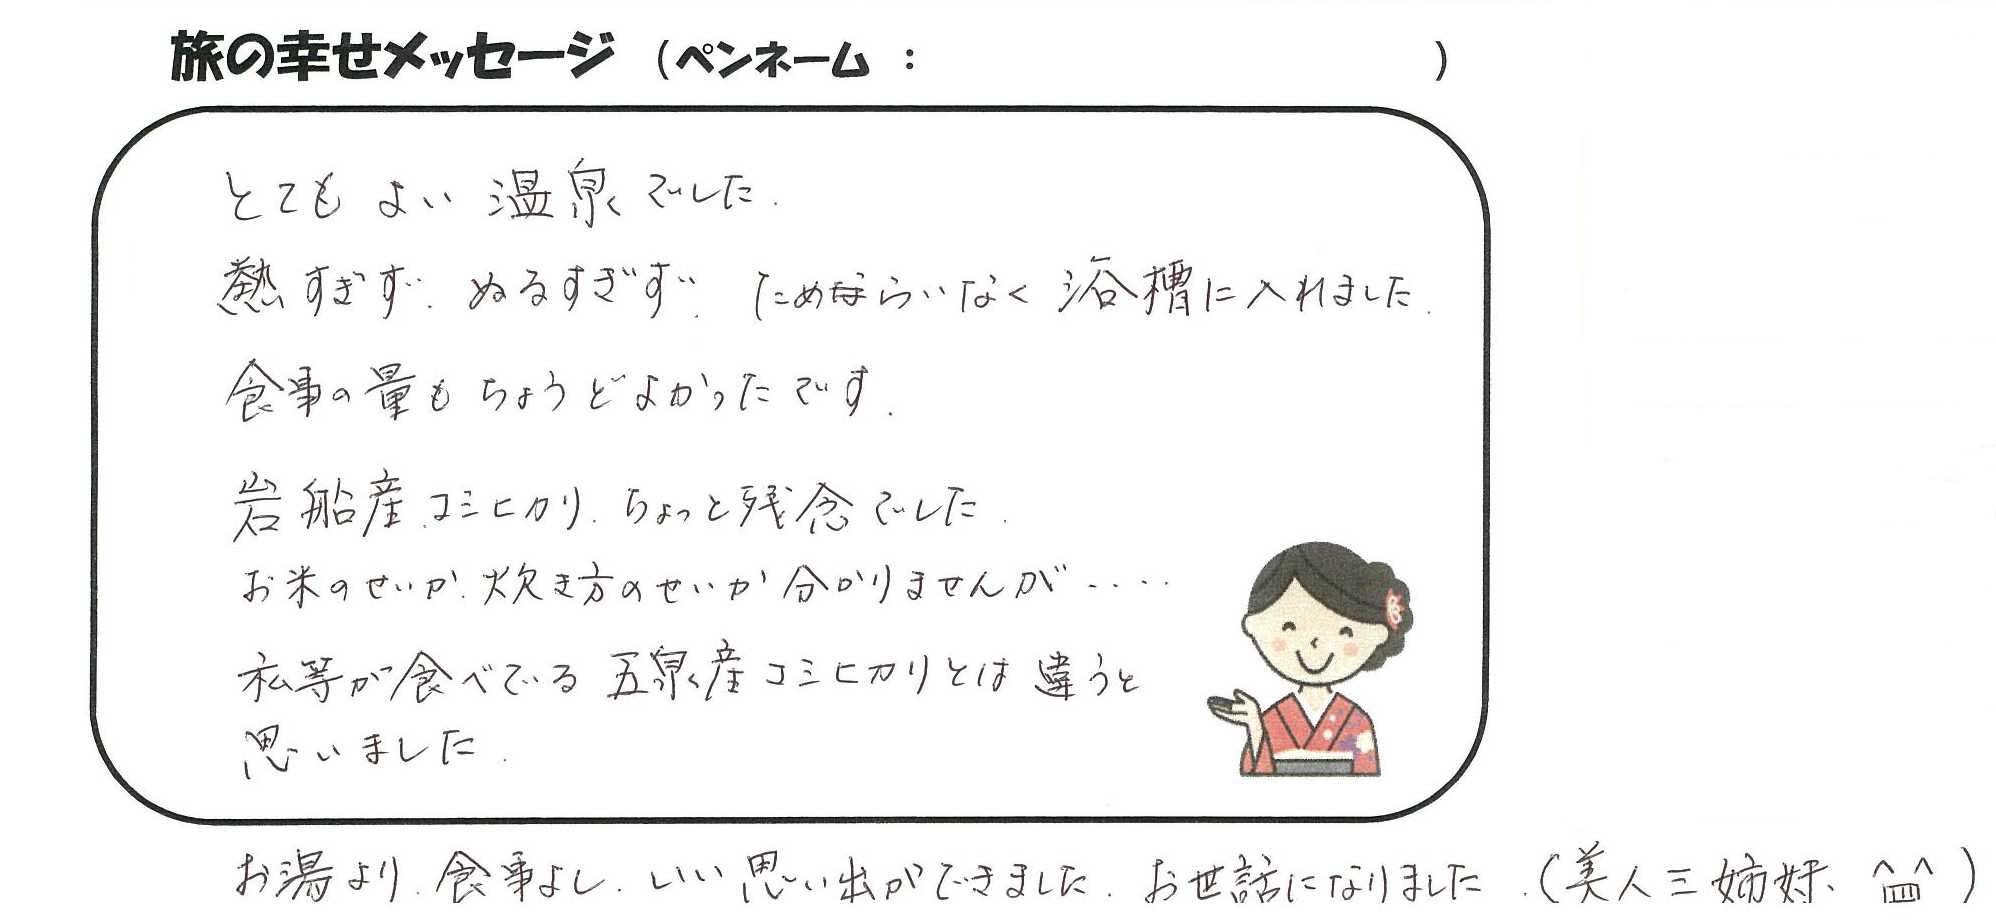 旅の幸せメッセージ （ペンネーム ： ）
とても よい 温泉でした.
熱すぎず. ぬるすぎず. ためらいなく 浴槽に入れました.
食事の量もちょうどよかったです.
岩船産コシヒカリ. ちょっと残念でした.
お米のせいか. 炊き方のせいか 分かりませんが‥‥
私等が食べでいる 五泉産コシヒカリとは 違うと
思いました.
お湯より. 食事よし. いい思い出ができました. お世話になりました. (美人三姉妹、^皿^)